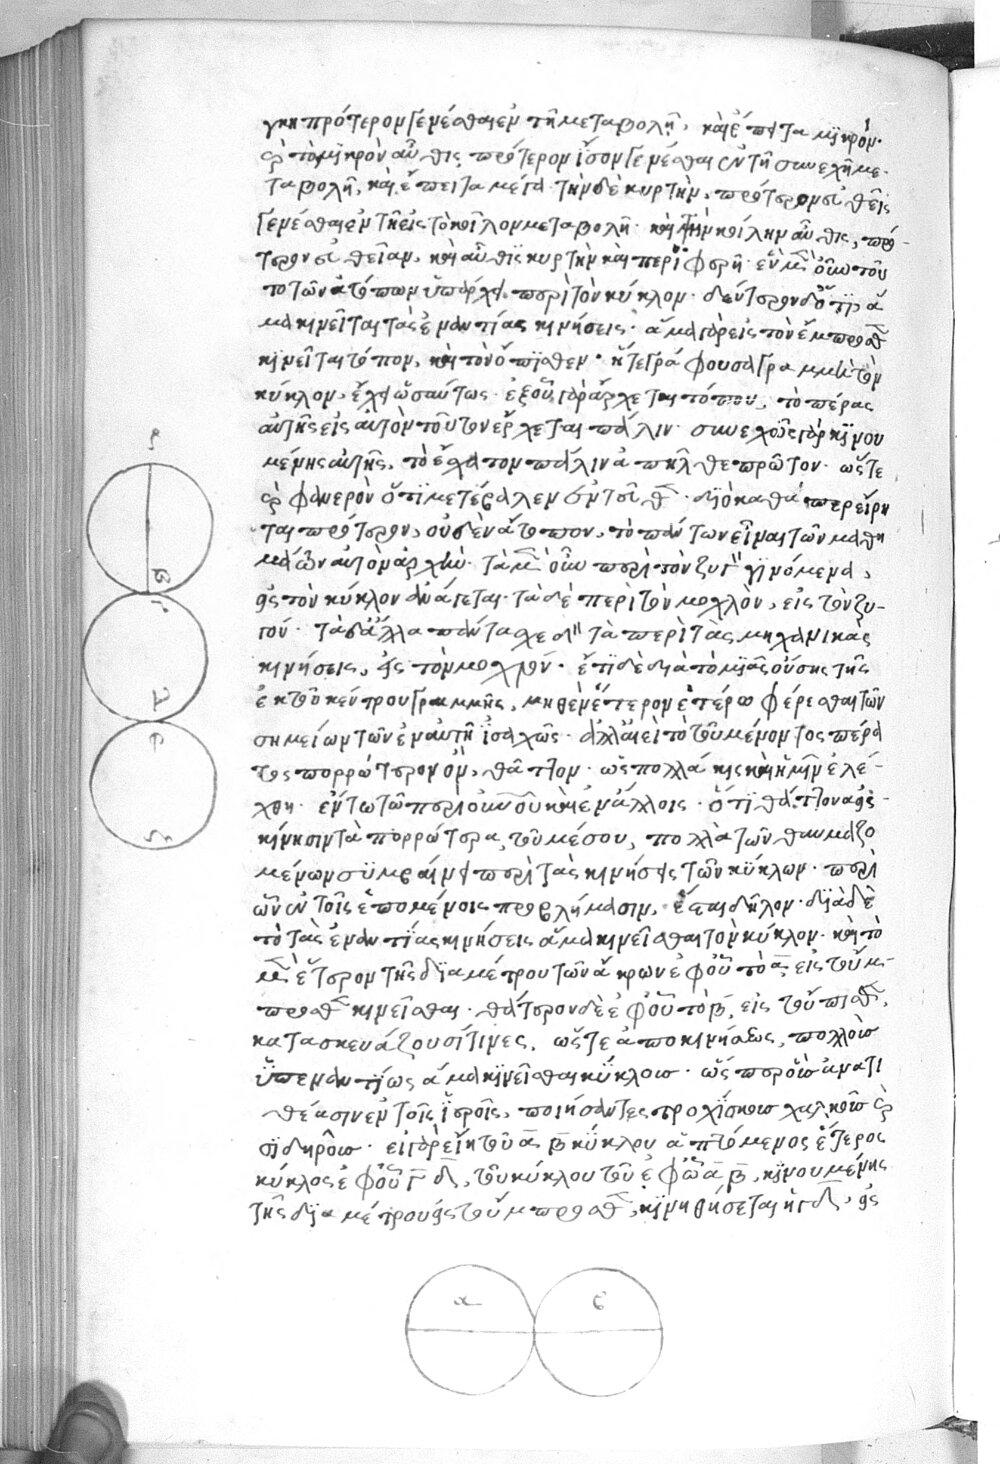 γκη πρότερον γενέσθαι ἐν τῇ μεταβολῇ, καὶ ἔπειτα μικρόν·
καὶ τὸ μικρὸν αὖθις πρότερον ἴσον γενέσθαι ἐν τῇ συνεχῆ με-
ταβολῇ, καὶ ἔπειτα μέγα· τὴν δὲ κυρτὴν, πρότερον εὐθεῖς
γενέσθαι ἐν τῇ εἰς τὸ κοῖλον μεταβολῇ· καὶ τὴν κοίλην αὖθις, πρό-
τερον εὐθεῖαν, καὶ αὖθις κυρτὴν καὶ περιφερῆ· ἓν μὲν οὖν τοῦ
το τῶν ἀτόπων ὑπάρχει περὶ τὸν κύκλον· δεύτερον δὲ ὅτι ἅ
μα κινεῖται τὰς ἐναντίας κινήσεις· ἅμα γὰρ εἰς τὸν ἔμπροσθεν
κινεῖται τόπον, καὶ τὸν ὄπισθεν· ἥ τε γράφουσα γραμμὴ τὸν
κύκλον, ἔχει ὡσαύτως· ἐξ οὗ γὰρ ἄρχεται τόπου, τὸ πέρας
αὐτῆς εἰς αὐτὸν τοῦτον ἔρχεται πάλιν· συνεχῶς γὰρ κινου
μένης αὐτῆς, τὸ ἔσχατον πάλιν ἀπῆλθε πρῶτον· ὥστε
καὶ φανερὸν ὅτι μετέβαλεν ἐντεῦθεν· διὸ καθάπερ εἴρη
ται πρότερον, οὐδὲν ἄτοπον, τὸ πάντων εἶναι τῶν θαυ
μάτων αὐτὸν ἀρχήν· τὰ μὲν οὖν περὶ τὸν ζυγὸν γινόμενα,
εἰς τὸν κύκλον ἀνάγεται· τὰ δὲ περὶ τὸν μοχλὸν, εἰς τὸν ζυ-
γόν· τὰ δ' ἄλλα πάντα σχεδὸν τὰ περὶ τὰς μηχανικὰς
κινήσεις, εἰς τὸν μοχλόν· ἔτι δὲ διὰ τὸ μιᾶς οὔσης τῆς
ἐκ τοῦ κέντρου γραμμῆς, μηθὲν ἕτερον ἑτέρω φέρεσθαι τῶν
σημείων τῶν ἐν αὐτῇ ἰσαχῶς· ἀλλ' ἀεὶ τὸ τοῦ μένοντος πέρα
τος πορρώτερον ὂν, θᾶττον· ὡς πολλάκις καὶ ἡμῖν ἐλέ-
χθη· ἐν τῶ τῶ περὶ οὐρανοῦ καὶ ἐν ἄλλοις· ὅτι θάττονα εἰς
κίνησιν τὰ πορρώτερα τοῦ μέσου, πολλὰ τῶν θαυμαζο
μένων συμβαίνει περὶ τὰς κινήσεις τῶν κύκλων· περὶ
ὧν ἐν τοῖς ἑπομένοις προβλήμασιν, ἔσται δῆλον· διὰ δὲ
τὸ τὰς ἐναντίας κινήσεις ἅμα κινεῖσθαι τὸν κύκλον· καὶ τὸ
μὲν ἕτερον τῆς διαμέτρου τῶν ἄκρων ἐφ' οὗ τὸ α εἰς τοὔμ-
προσθεν κινεῖσθαι· θάτερον δὲ ἐφ' οὗ τὸ β, εἰς τοὔπισθεν,
κατασκευάζουσί τινες, ὥστε ἀπὸ κινήσεως, πολλοὺς
ὑπεναντίως ἅμα κινεῖσθαι κύκλους· ὥσπερ οὓς ἀνατι
θέασιν ἐν τοῖς ἱεροῖς, ποιήσαντες τροχίσκους χαλκοῦς καὶ
σιδηροῦς· εἰ γὰρ εἴη τοῦ α β κύκλου ἁπτόμενος ἕτερος
κύκλος ἐφ' οὗ γ δ, τοῦ κύκλου τοῦ ἐφ' ᾧ α β, κινουμένης
τῆς διαμέτρου εἰς τοὔμπροσθεν, κινηθήσεται ἡ γ δ, εἰς
β
γ
δ
ε
ζ
α
β